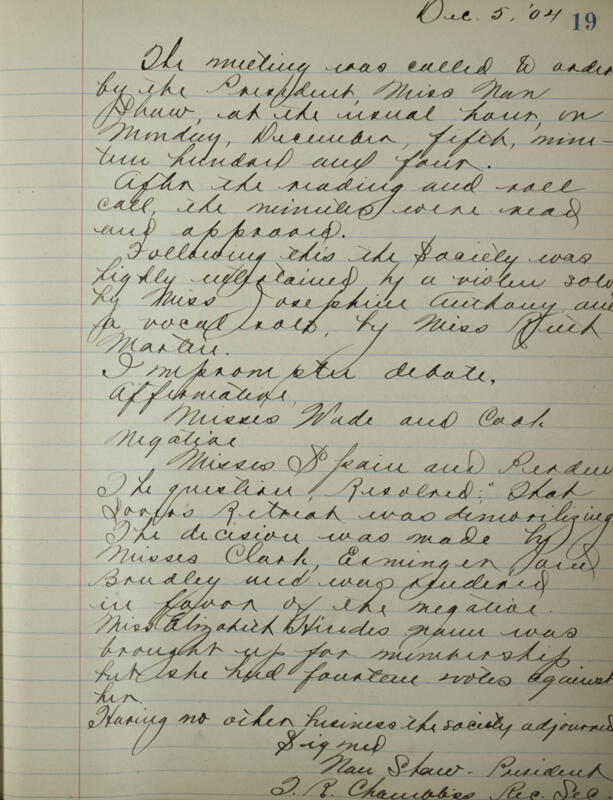 Dec. 5, '04 19
The meeting was called to order
by the President, Miss Nan
Shaw, at the usual hour, on
Monday, December, fifth, nine-
teen hundred and four.
After the reading and roll
call, the minutes were read
and approved.
Following this the Society was
highly entertained by a violin solo
by Miss Josephine Anthony and
a vocal solo, by Miss Ruth
Martin.
Impromptu debate.
Affirmative,
Misses Wade and Cook
Negative
Misses Spain and
The question, Resolved: "That
Lovers Retreat was demorilizing
The decision was made by
Misses Clark, Erminger and
Bradley and was rendered
in favor of the negative.
Miss Elizabeth name was
brought up for membership
but she had fourteen votes against
her.
Having no other business the society adjourned
Signed
Nan Shaw - President
T. R. Chambliss Rec. Sec.